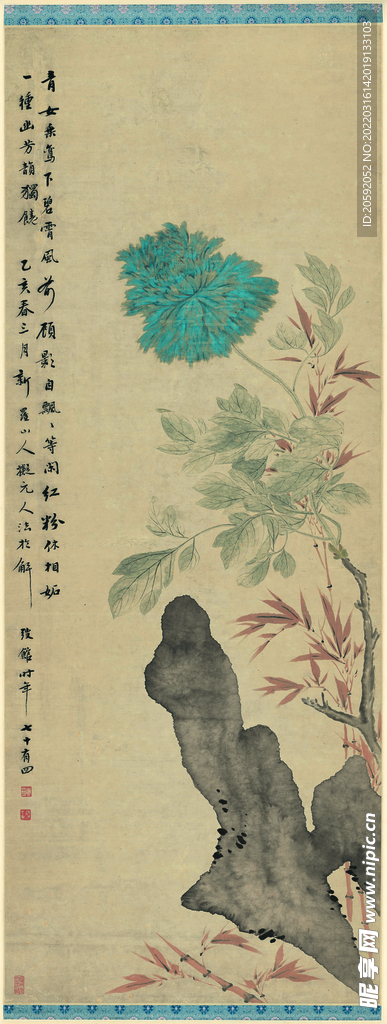 青女乘鸞下碧霄風前顧影自飄〻等閑紅粉休相妬
一種幽芳韻獨饒 乙亥春三月新羅山人擬元人法於解
弢館時年七十有四
ID:20592052 NO:20220316142019133103
昵享网 www.nipic.cn